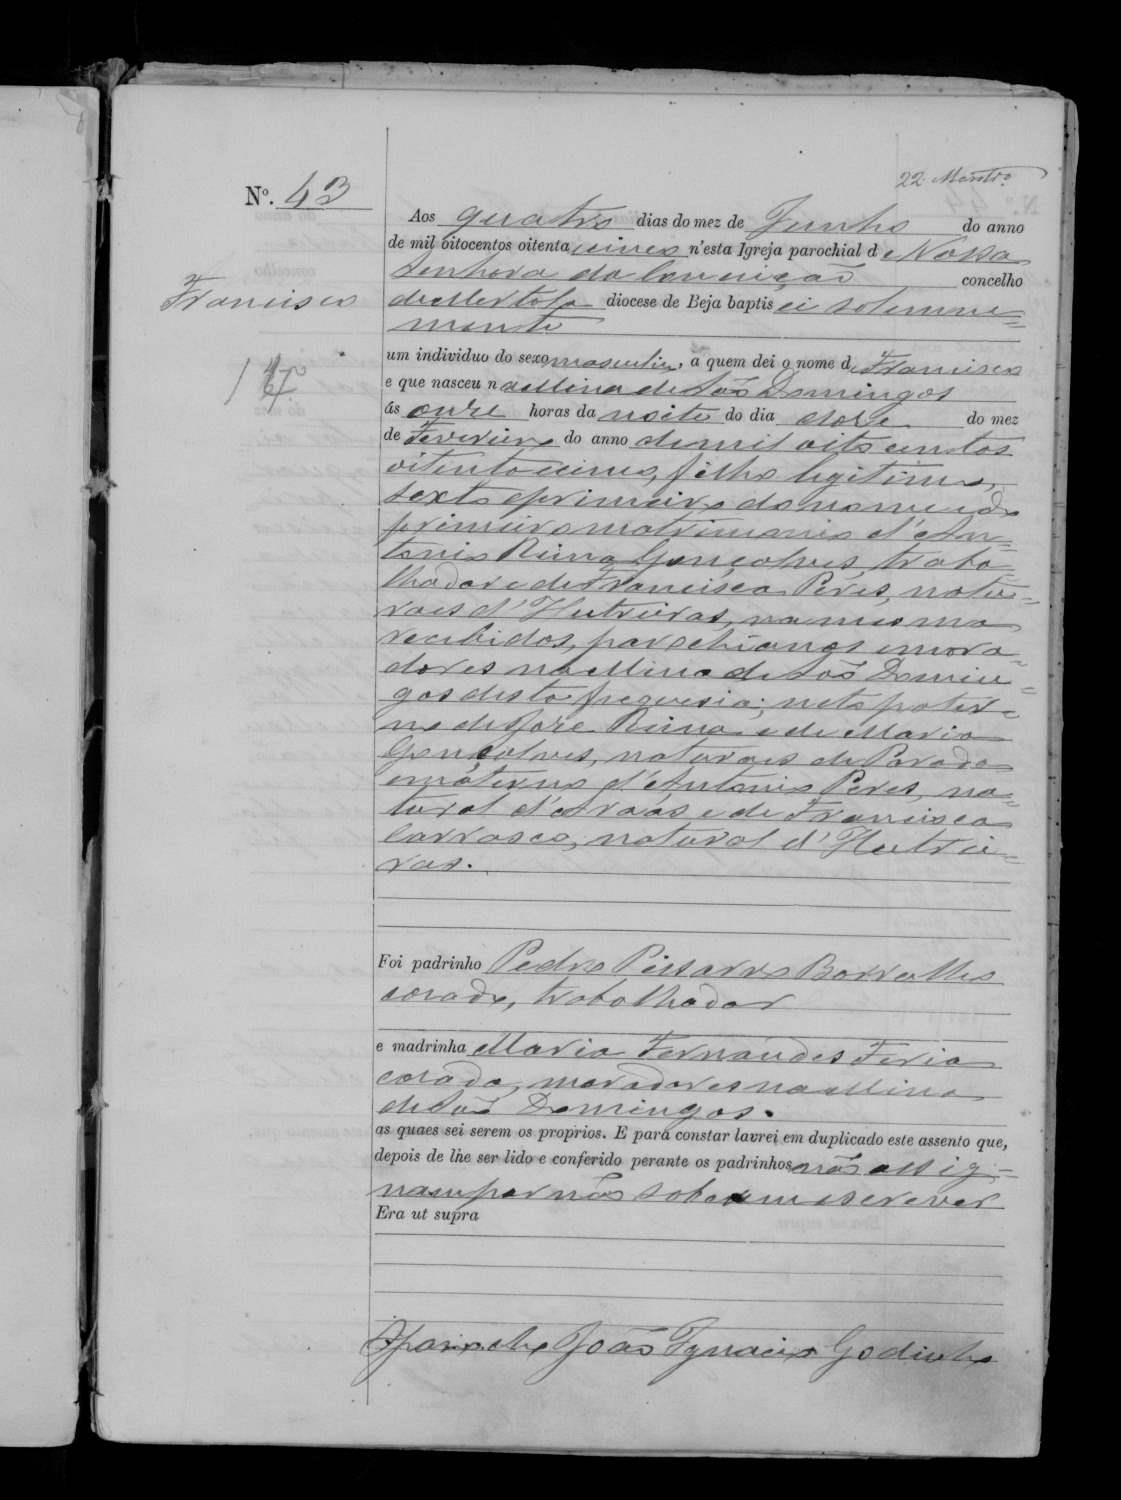 22
Nº. 43
Aos quatro dias do mez de Junho do anno
de mil oitocentos oitenta cinco n'esta Igreja parochial de Nossa
Senhora da Conceição concelho
Francisco
de Mertola diocese de Beja baptisei solemne=
mente
um individuo do sexo masculino, a quem dei o nome de Francisco
e que nasceu na Mina de São Domingos
ás onze horas da noite do dia doze do mez
de Fevereiro do anno de mil oito centos
oitenta cinco, filho legitimo,
sexto e primeiro do nome e do
primeiro matrimonio d'An=
tonio Gonçalves, traba=
lhador e de Francisca Péres, natu=
raes d', na mesma
recebidos, parochianos e mora=
dores na Mina de São Domin=
gos desta freguesia; neto pater=
no de José e de Maria
Gonçalves, naturaes de
e materno d'Antonio Peres, na=
tural d' e de Francisca
Carrasco, natural d'
ras.
Foi padrinho Pedro
casado, trabalhador
e madrinha Maria Fernandes Feria
casada, moradores na Mina
de São Domingos.
as quaes sei serem os proprios. E para constar lavrei em duplicado este assento que,
depois de lhe ser lido e conferido perante os padrinhos não assig=
nam por não saberem escrever
Era ut supra
O parocho João Ignacio Godinho